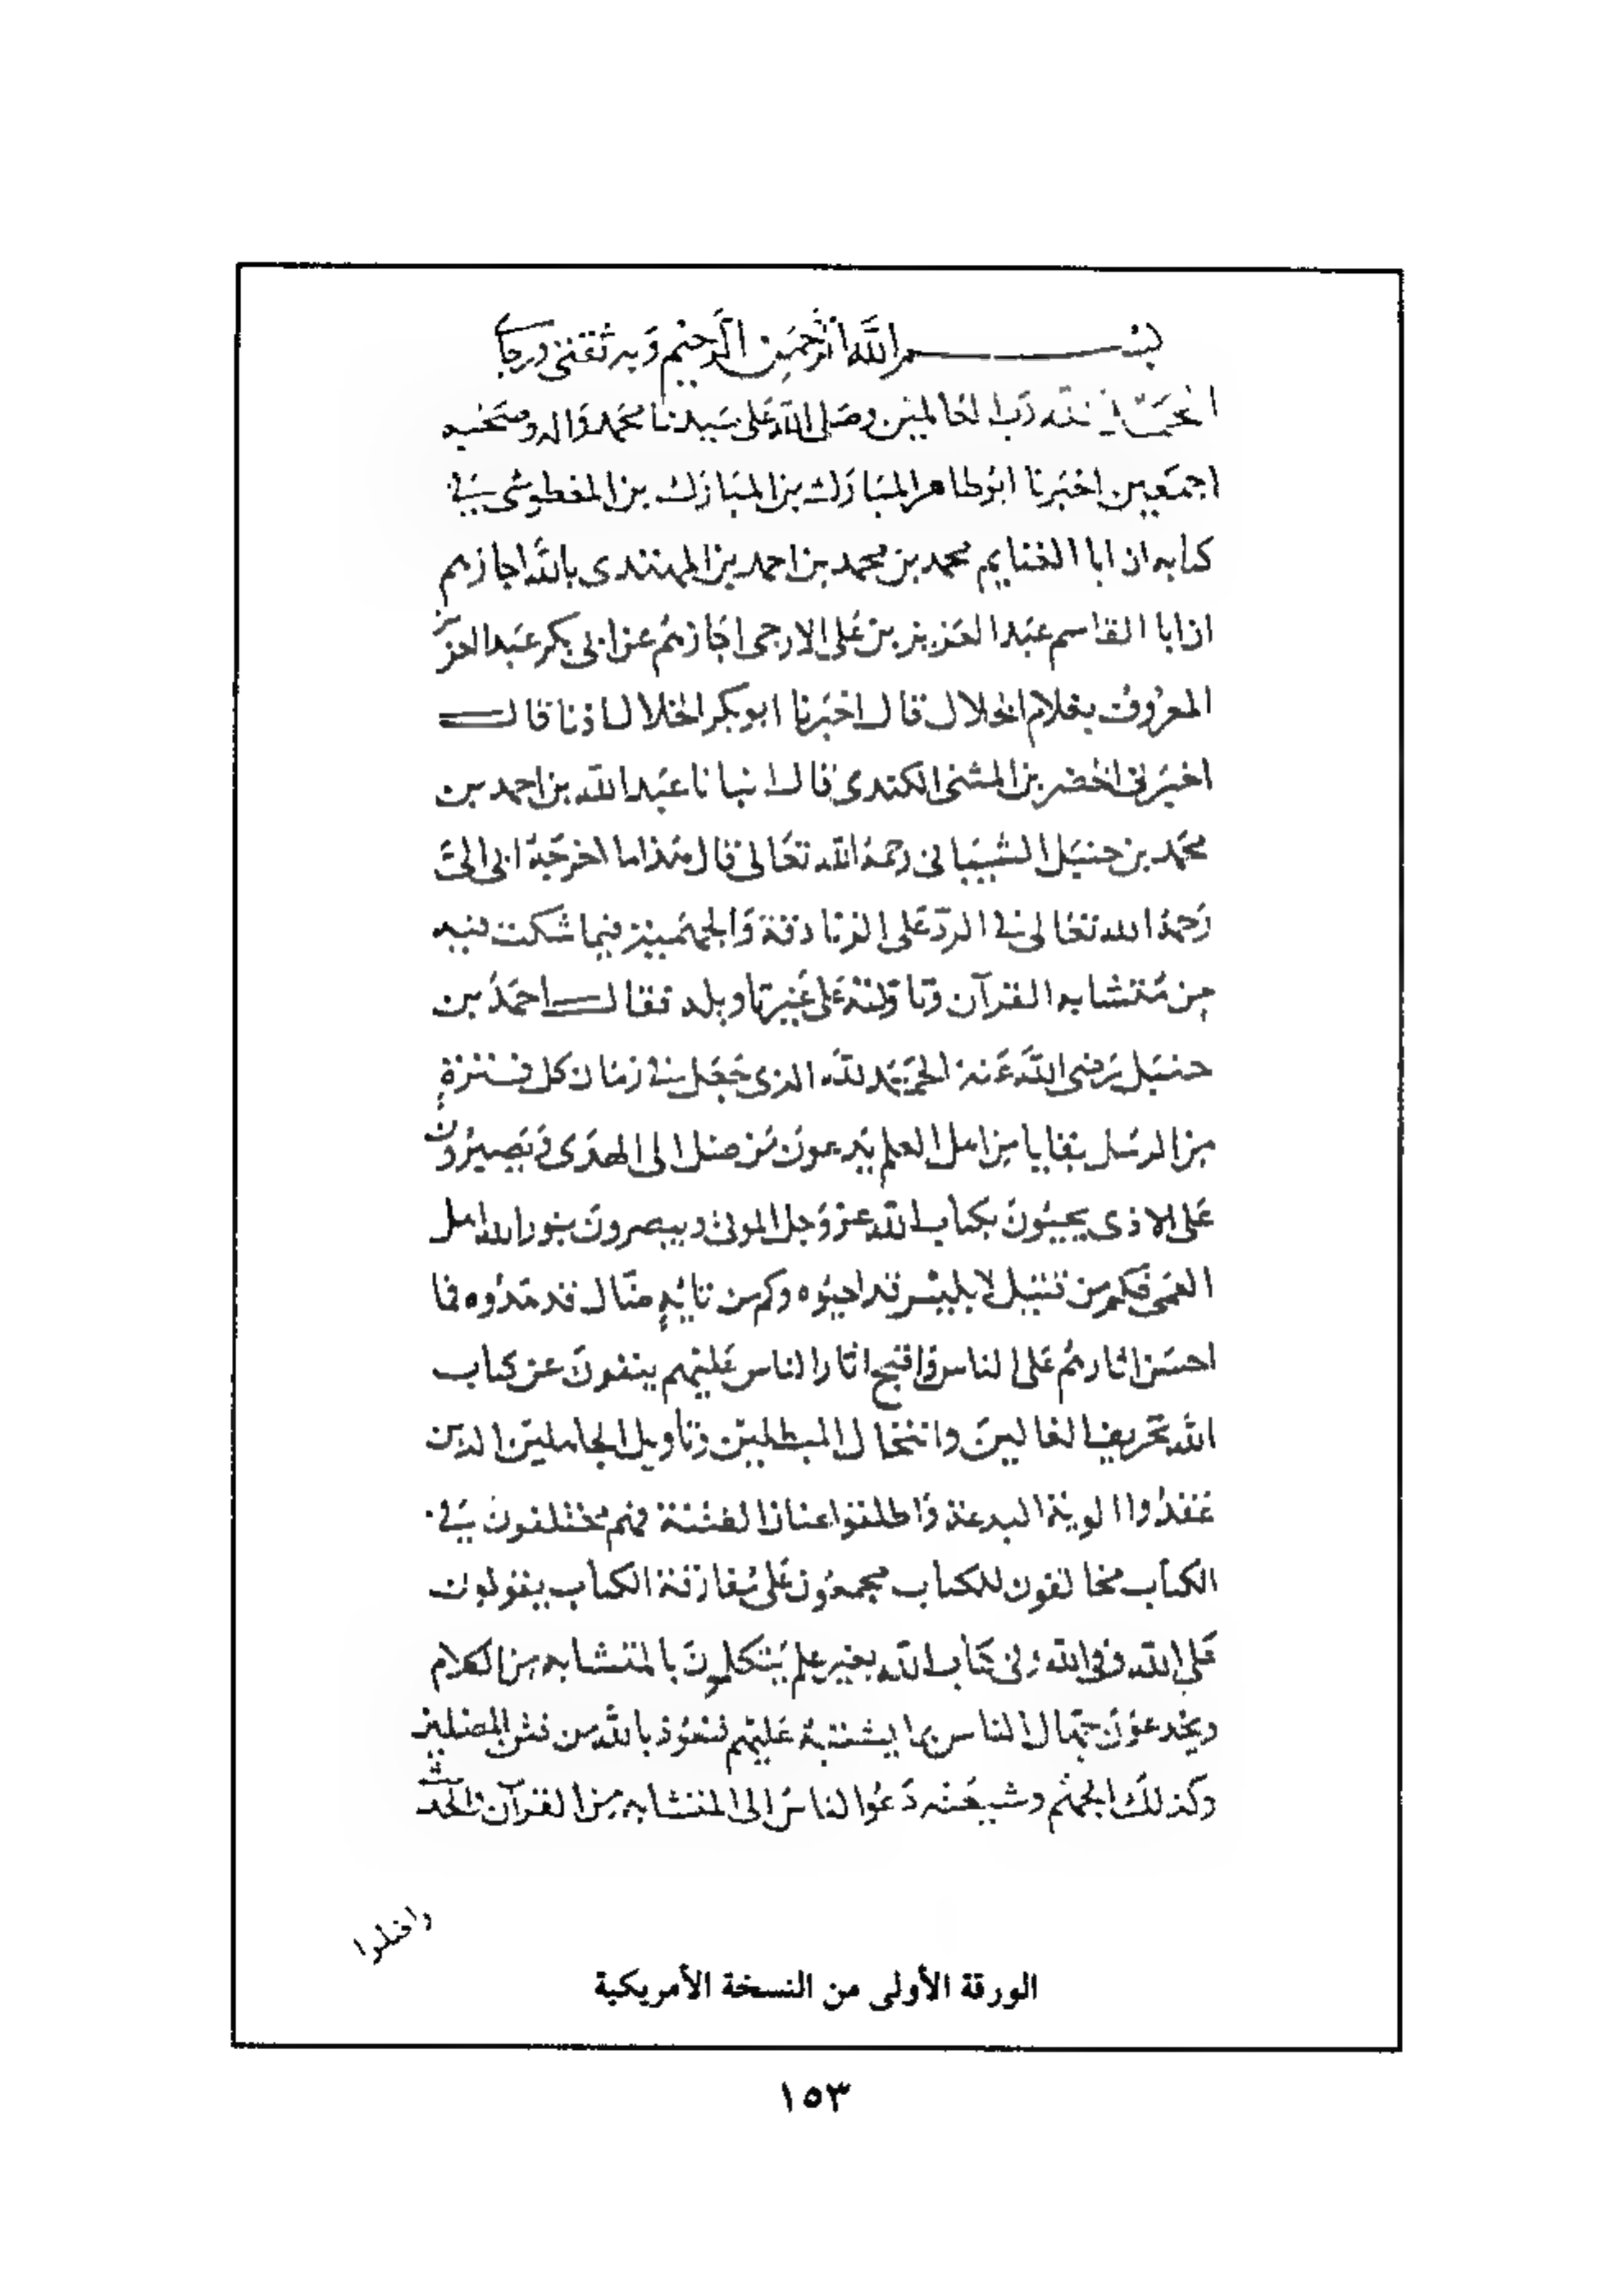 بسم الله الرحمن الرحيم وبه ثقتي ورجاي
الحمد لله رب العالمين وصلى الله على سيدنا محمد واله وصحبه
اجمعين اخبرنا ابو طاهر المبارك بن المبارك بن المعطوش في
كتابه ان ابا الغنايم محمد بن محمد بن احمد بن المهتدى بالله اجازهم
ان ابا القاسم عبد العزيز بن على الازجى اجازهم عن ابى بكر عبد العزيز
المعروف بغلام الخلال قال اخبرنا ابو بكر الخلال اذنا قال
اخبرنى الخضر بن المثنى الكندى قال انبانا عبد الله بن احمد بن
محمد بن حنبل الشيبانى رحمه الله تعالى قال هذا ما اخرجه ابى الى
رحمه الله تعالى في الرد على الزنادقة والجهمية فيما شكت فيه
من متشابه القرآن وتاولته على غير تاويله فقال احمد بن
حنبل رضى الله عنه الحمد لله الذى جعل في زمان كل فترة
من الرسل بقايا من اهل العلم يدعون من ضل الى الهدى ويصبرون
على الاذى يحيون بكتاب الله عز وجل الموتى ويبصرون بنور الله اهل
العمى فكم من قتيل لابليس قد احيوه وكم من تايه ضال قد هدوه فما
احسن اثارهم على الناس واقبح اثار الناس عليهم ينفون عن كتاب
الله تحريف الغالين وانتحال المبطلين وتأويل الجاهلين الذين
عقدوا الوية البدعة واطلقوا عنان الفتنة فهم مختلفون في
الكتاب مخالفون للكتاب مجمعون على مفارقة الكتاب يقولون
على الله وفى الله وفى كتاب الله بغير علم يتكلمون بالمتشابه من الكلام
ويخدعون جهال الناس بما يشتبه عليهم فنعوذ بالله من فتن المضلين
وكذلك الجهم وشيعته دعوا الناس الى المتشابه من القرآن والحديث
واضلوا
الورقة الأولى من النسخة الأمريكية
١٥٣